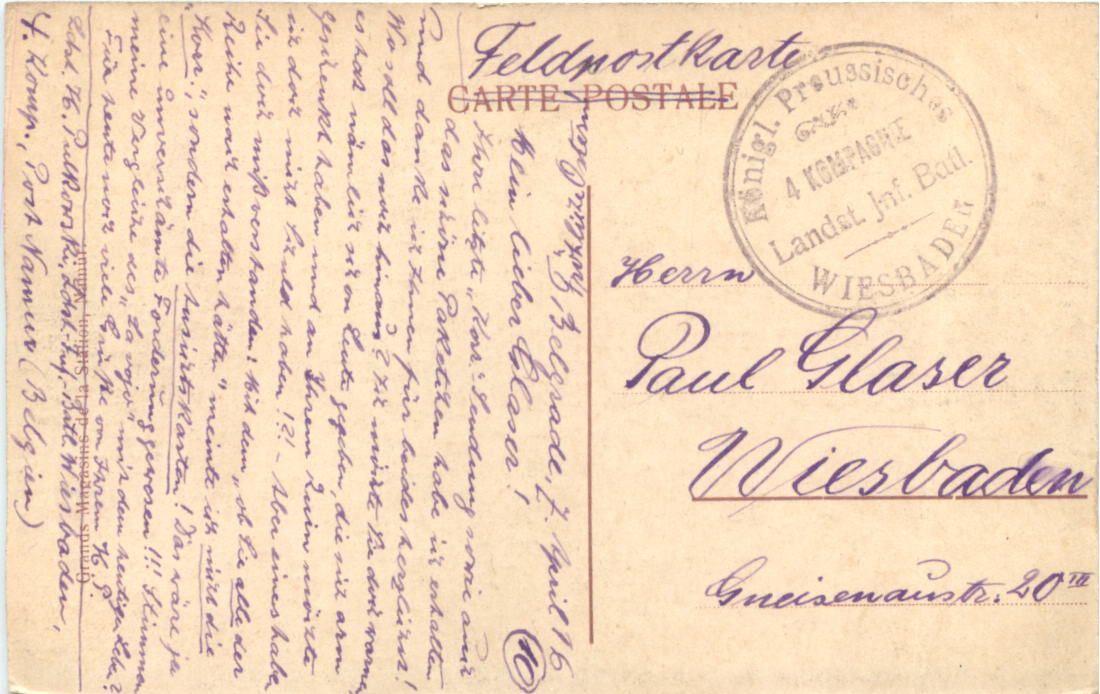 Feldpostkarte
CARTE POSTALE
Königl. Preussisches
4 KOMPAGNIE
Landst. Jnf. Batl.
WIESBADEN
Herrn
Paul Glaser
Wiesbaden
Gneisenaustr. 20 III
Belgrade, 7. April 16
10
Mein lieber Glaser!
Ihre letzte „Korr. Sendung sowie auch
das schöne Paketchen habe ich erhalten
und danke ich Ihnen für beides herzlichst!
Wo soll das nur hinaus? Ich möchte Sie doch warnen
es hat nämlich schon Leute gegeben, die sich arm
geschenkt haben und an Ihrem Ruin möchte
ich doch nicht Schuld haben!?! – Aber eines habe
Sie doch mißverstanden: Mit dem „ob Sie alle der
Reihe nach erhalten hätten" meinte ich nicht die
„Korr.", sondern die Ansichtskarten! Das wäre ja
eine unverschämte Forderung gewesen!!! Stimmen
meine Vergleiche des „La vojo" mit den heutigen
Für heute noch viele Grüße von Ihrem K. P.
K. Pulkowski, Ldst. Inf. Batl. Wiesbaden,
4. Komp., Post Namur (Belgien)
Grands Magasins de la Station, Namur